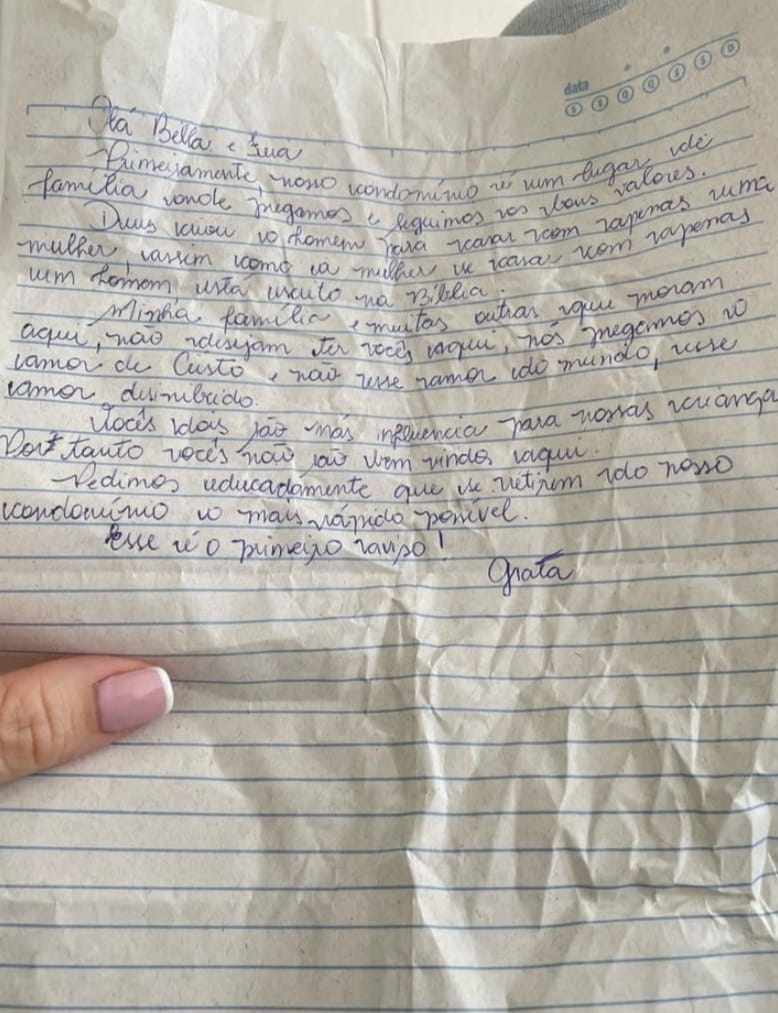 data
S T Q Q S S D
Olá Bella e Lua
Primeiramente, nosso condomínio é um lugar de
família onde pregamos e seguimos os bons valores.
Deus criou o homem para casar com apenas uma
mulher, assim como a mulher se casar com apenas
um homem, esta escrito na Bíblia.
Minha família e muitas outras que moram
aqui, não desejam ter vocês aqui, nós pregamos o
amor de Cristo e não esse amor do mundo, esse
amor desinibido.
Vocês dois são más influencia para nossas criança
Portanto vocês não são bem vindos aqui.
Pedimos educadamente que se retirem do nosso
condomínio o mais rápido possível.
Esse é o primeiro aviso!
Grata